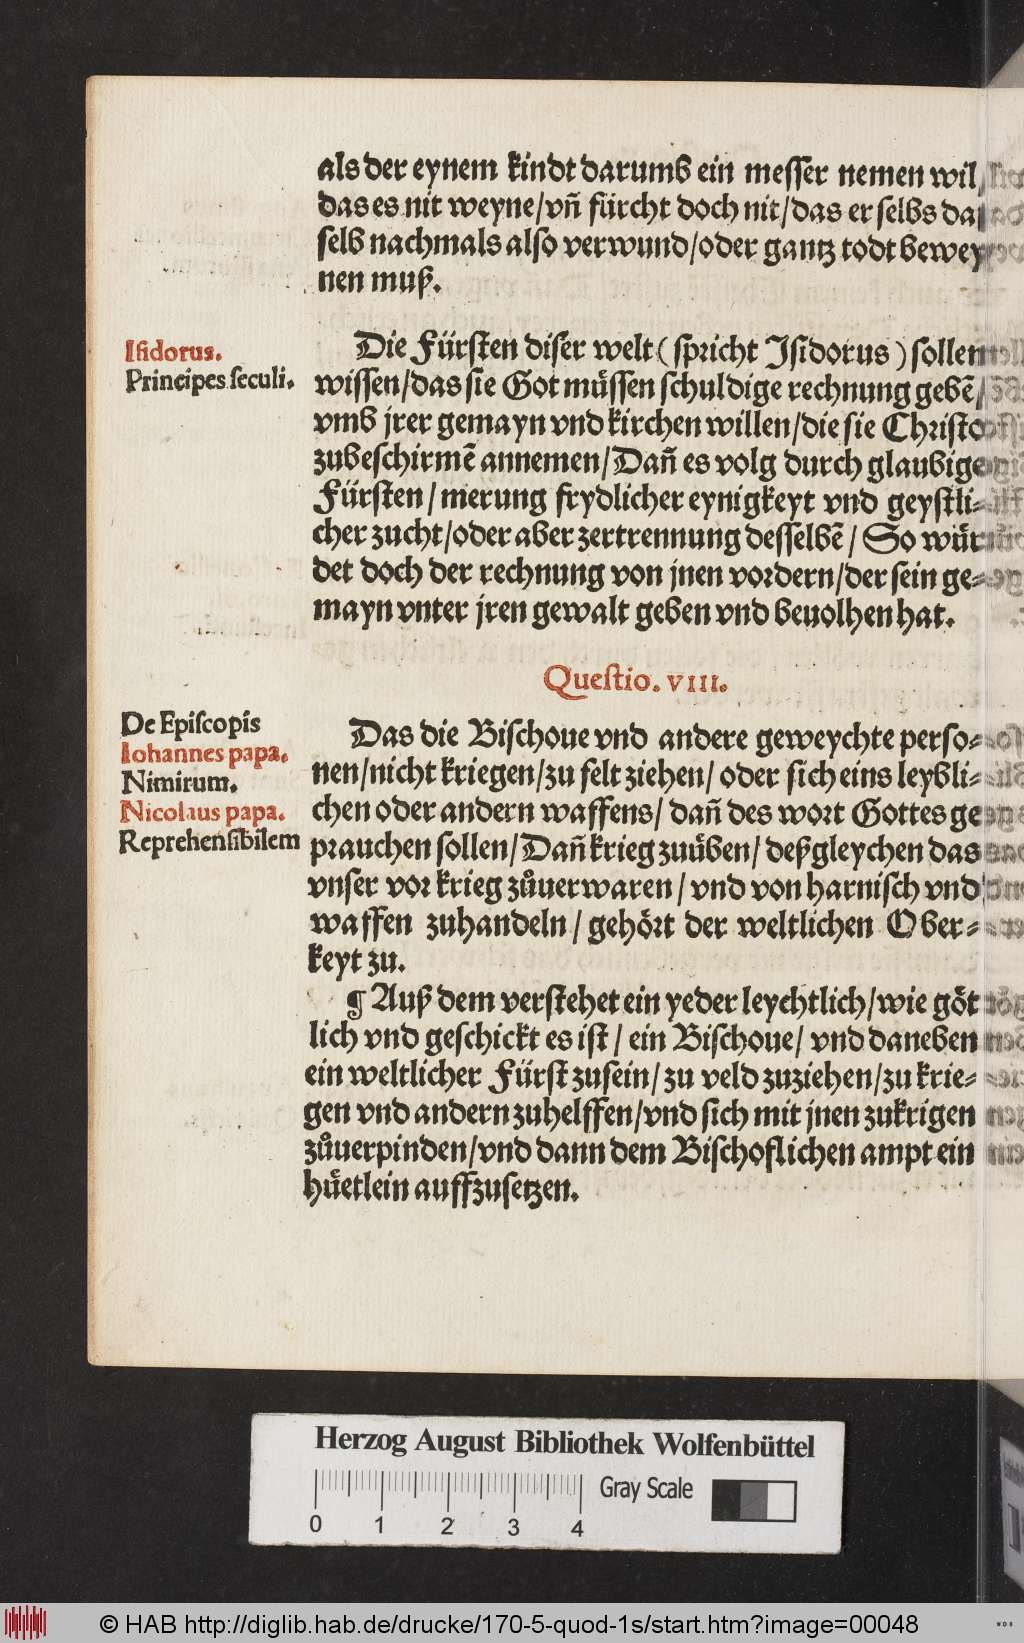 als der eynem kindt darumb ein messer nemen wil/
das es nit weyne/vñ fürcht doch nit/das er selbs da
selb nachmals also verwund/oder gantz todt bewey
nen muß.
Isidorus.
Principes seculi.
Die Fürsten diser welt (spricht Isidorus) sollen
wissen/das sie Got müssen schuldige rechnung gebē/
vmb jrer gemayn vnd kirchen willen/die sie Christo
zubeschirmē annemen/Dañ es volg durch glaubige
Fürsten/merung frydlicher eynigkeyt vnd geystli-
cher zucht/oder aber zertrennung desselbē/So wür
det doch der rechnung von jnen vordern/der sein ge-
mayn vnter jren gewalt geben vnd beuolhen hat.
Questio. VIII.
De Episcopis
Iohannes papa.
Nimirum.
Nicolaus papa.
Reprehensibilem
Das die Bischoue vnd andere geweychte perso-
nen/nicht kriegen/zu felt ziehen/oder sich eins leybli-
chen oder andern waffens/dañ des wort Gottes ge
prauchen sollen/Dañ krieg zuüben/deßgleychen das
vnser vor krieg zůuerwaren/vnd von harnisch vnd
waffen zuhandeln/gehört der weltlichen Ober-
keyt zu.
¶ Auß dem verstehet ein yeder leychtlich/wie göt
lich vnd geschickt es ist/ein Bischoue/vnd daneben
ein weltlicher Fürst zusein/zu veld zuziehen/zu krie-
gen vnd andern zuhelffen/vnd sich mit jnen zukrigen
zůuerpinden/vnd dann dem Bischoflichen ampt ein
hüetlein auffzusetzen.
Herzog August Bibliothek Wolfenbüttel
Gray Scale
0 1 2 3 4
© HAB http://diglib.hab.de/drucke/170-5-quod-1s/start.htm?image=00048